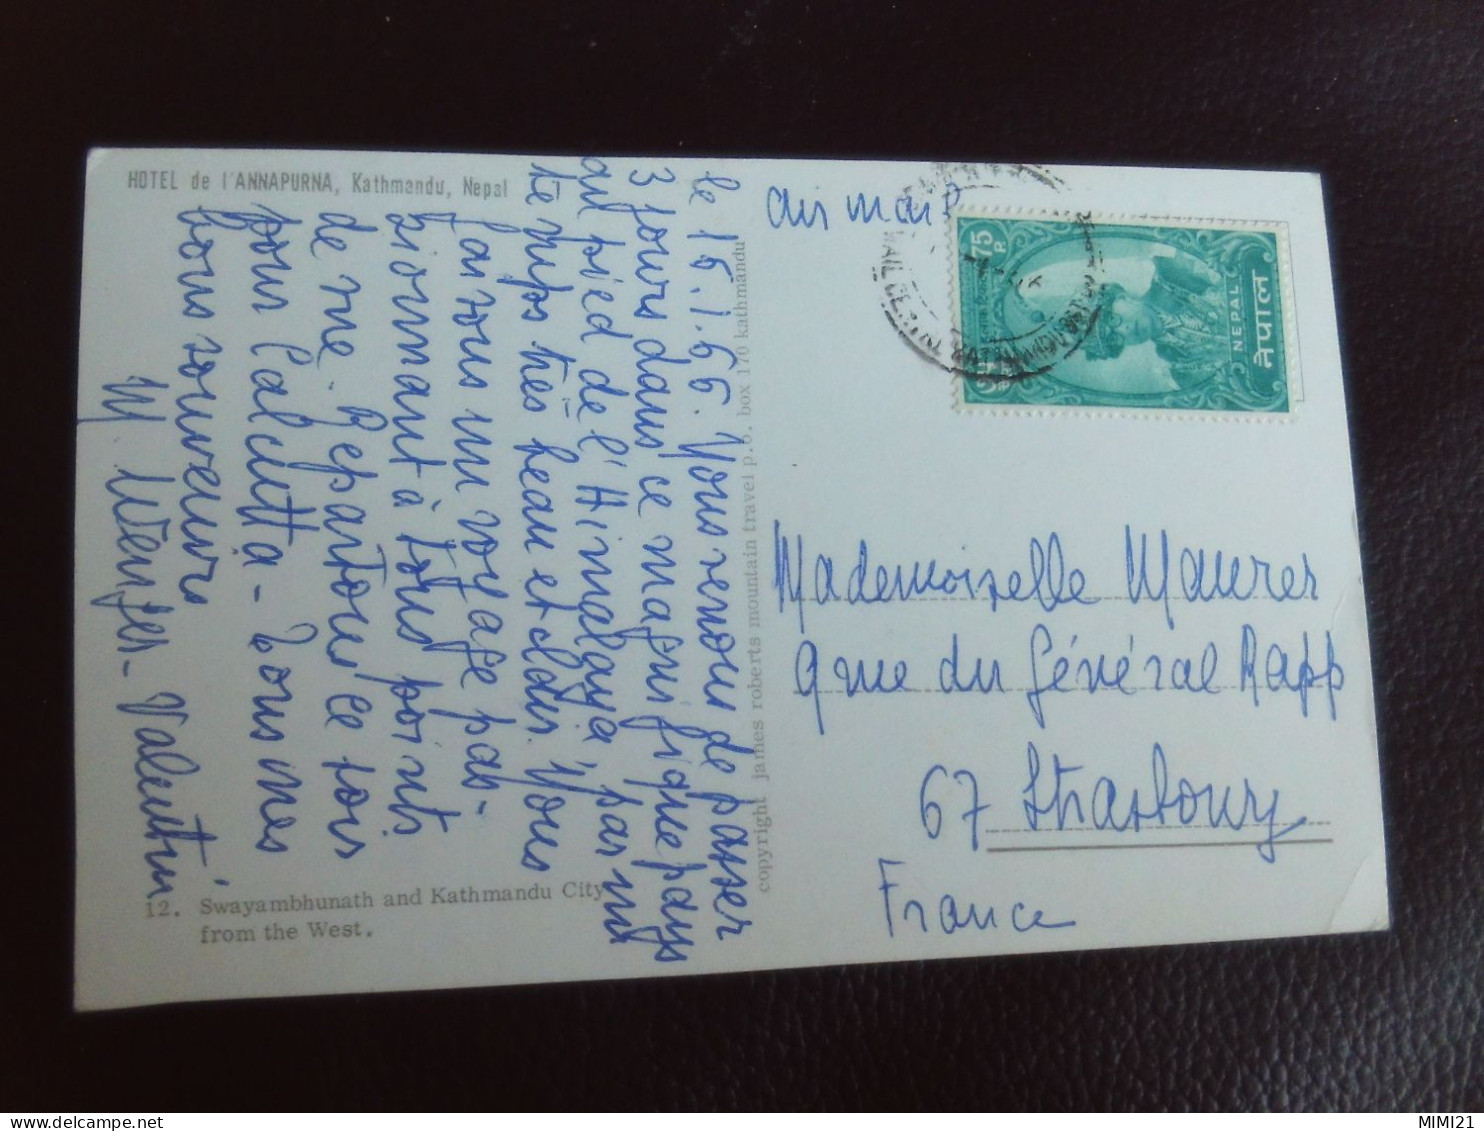 HOTEL de l'ANNAPURNA, Kathmandu, Nepal
le 15.1.66. Nous venons de passer
3 jours dans ce magnifique pays
au pied de l'Himalaya par un
temps très beau et clair. Nous
faisons un voyage pas-
sionnant à tous points
de vue. Repartons ce soir
pour Calcutta - Tous nos
bons souvenirs
M Wenger - Valentin
12. Swayambhunath and Kathmandu City
from the West.
copyright james roberts mountain travel p.o. box 170 kathmandu
air mail
75
P
NEPAL
नेपाल
Mademoiselle Maurer
9 rue du Général Rapp
67 Strasbourg
France
MIMI21